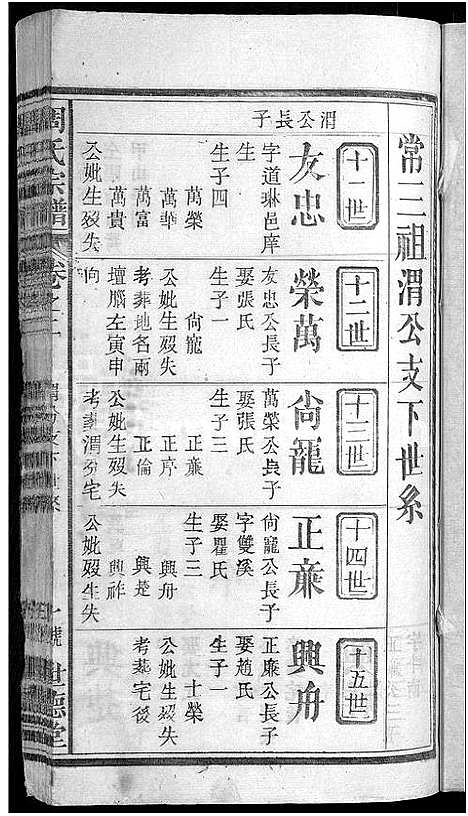 常三祖渭公支下世系
十一世
渭公長子
友忠
字道琳邑庠
生
生子四
萬榮
萬華
萬富
萬貴
公妣生歿失
十二世
榮萬
友忠公長子
娶張氏
生子一
尙寵
公妣生歿失
考葬地名兩
壇腦左寅申
向
十三世
尙寵
萬榮公長子
娶張氏
生子三
正亷
正庠
正倫
公妣生歿失
考葬渭公宅
十四世
正亷
尙寵公長子
字雙溪
娶瞿氏
生子三
士榮
興舟
興楚
興祚
公妣歿生失
十五世
興舟
正廉公長子
娶趙氏
生子一
士榮
公妣生歿失
考葬宅後
周氏宗譜
卷之二
世德堂